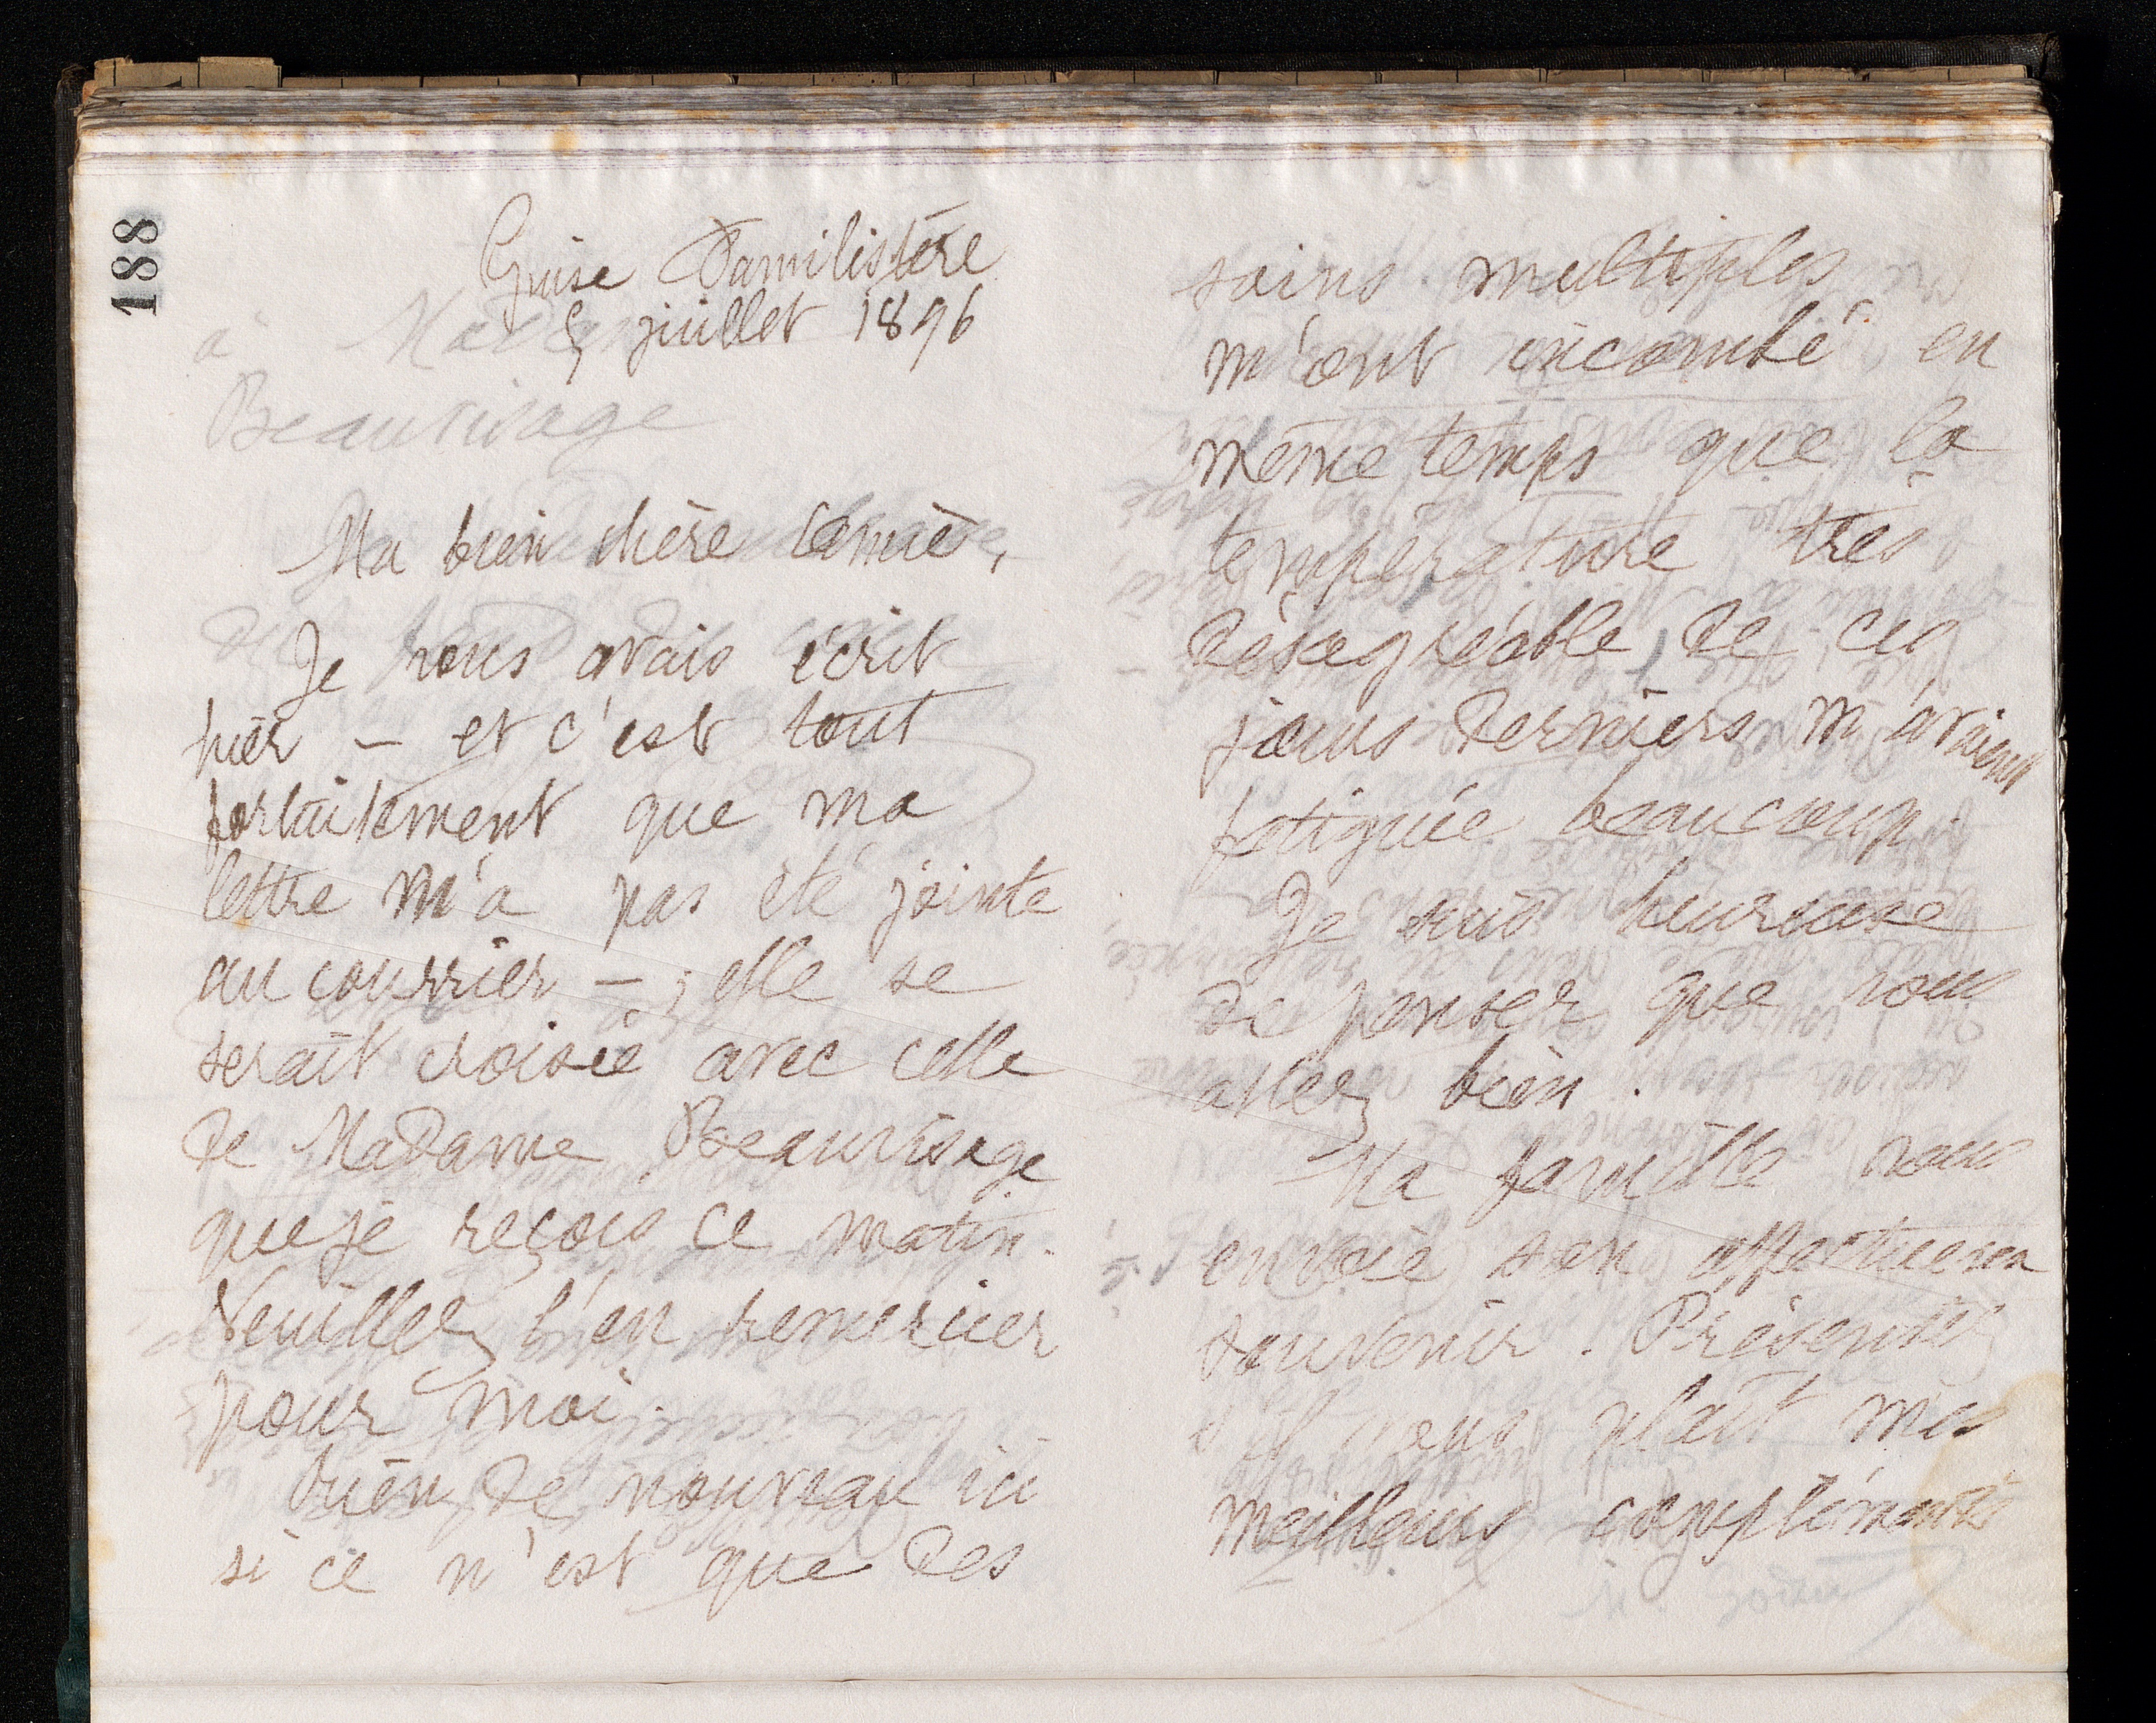 188
Guise Familistère
5 juillet 1896
à Madame
Beauvisage
Ma bien chère amie,
Je vous avais écrit
hier – et c'est tout
fortuitement que ma
lettre n'a pas été jointe
au courrier – ; elle se
serait croisée avec celle
de Madame Beauvisage
que je reçois ce matin.
Veuillez l'en remercier
pour moi.
Rien de nouveau ici
si ce n'est que des
soins multiples
m'ont incombé en
même temps que la
température très
désagréable de ces
jours derniers m'avaient
fatiguée beaucoup.
Je suis heureuse
de penser que vous
allez bien.
Ma famille vous
envoie son affectueux
souvenir. Présentez
s'il vous plaît mes
meilleurs compliments